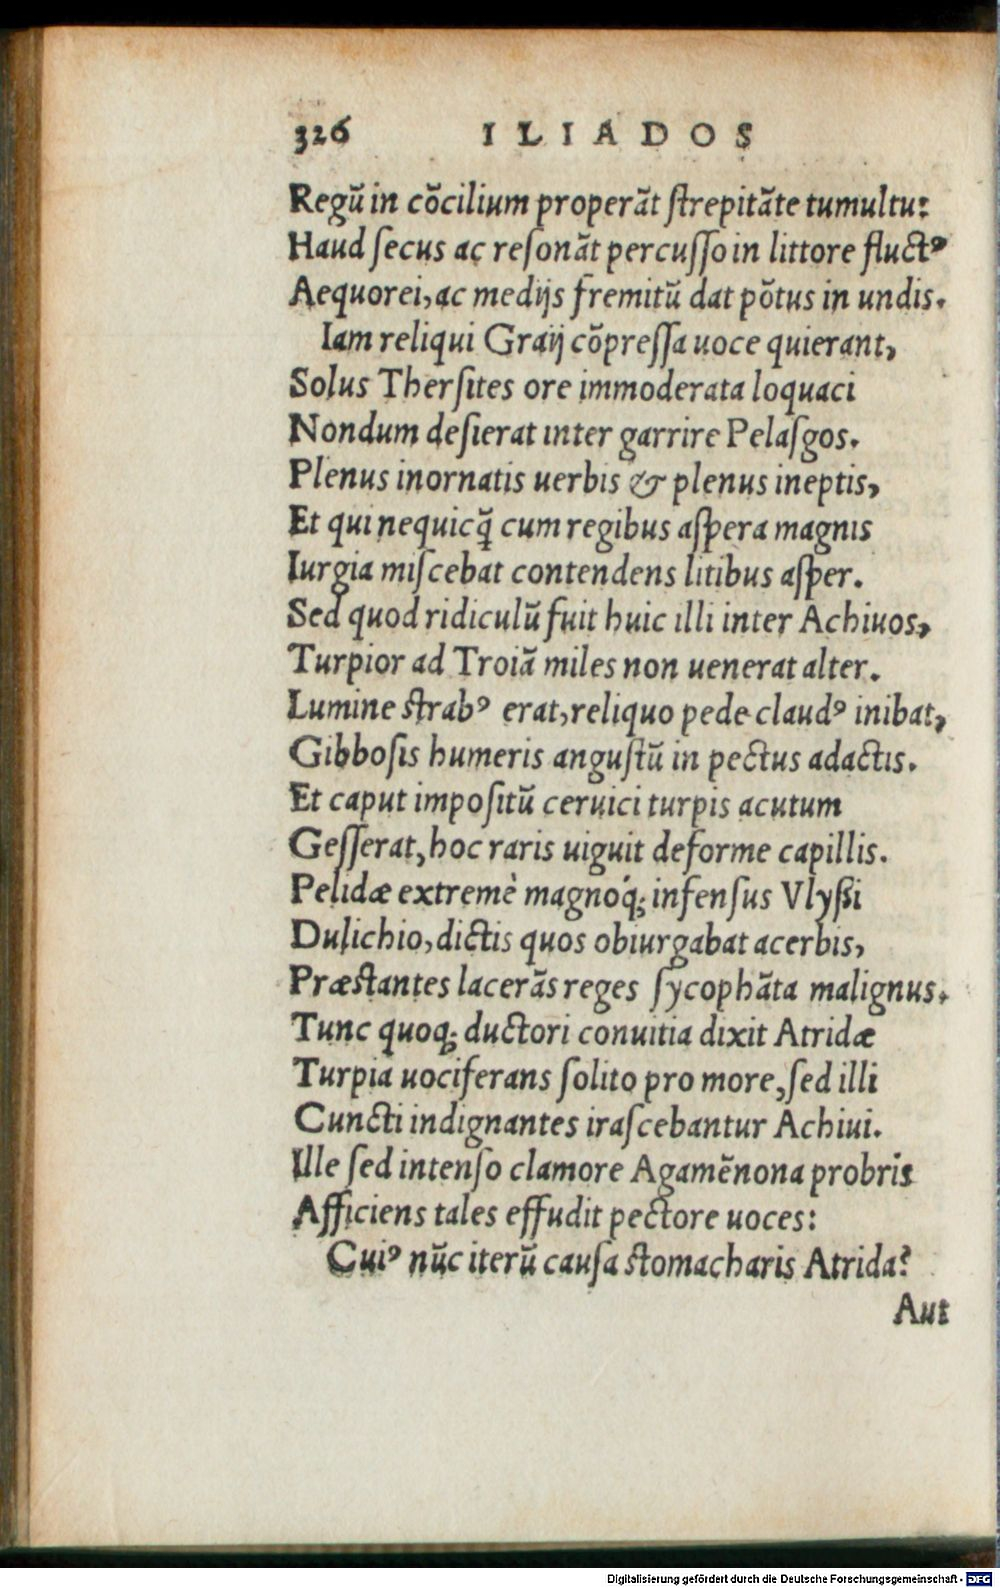 326 ILIADOS
Regũ in cõcilium properãt ſtrepitãte tumultu:
Haud ſecus ac reſonãt percuſſo in littore fluctꝰ
Aequorei, ac medijs fremitũ dat põtus in undis.
Iam reliqui Graij cõpreſſa uoce quierant,
Solus Therſites ore immoderata loquaci
Nondum deſierat inter garrire Pelaſgos.
Plenus inornatis uerbis & plenus ineptis,
Et qui nequicq̃ cum regibus aſpera magnis
Iurgia miſcebat contendens litibus aſper.
Sed quod ridiculũ fuit huic illi inter Achiuos,
Turpior ad Troiã miles non uenerat alter.
Lumine ſtrabꝰ erat, reliquo pede claudꝰ inibat,
Gibboſis humeris anguſtũ in pectus adactis.
Et caput impoſitũ ceruici turpis acutum
Geſſerat, hoc raris uiguit deforme capillis.
Pelidæ extremè magnoq́; infenſus Vlyßi
Dulichio, dictis quos obiurgabat acerbis,
Præſtantes lacerãs reges ſycophãta malignus.
Tunc quoq; ductori conuitia dixit Atridæ
Turpia uociferans ſolito pro more, ſed illi
Cuncti indignantes iraſcebantur Achiui.
Ille ſed intenſo clamore Agamẽnona probris
Afficiens tales effudit pectore uoces:
Cuiꝰ nũc iterũ cauſa ſtomacharis Atrida?
Aut
Digitalisierung gefördert durch die Deutsche Forschungsgemeinschaft - DFG